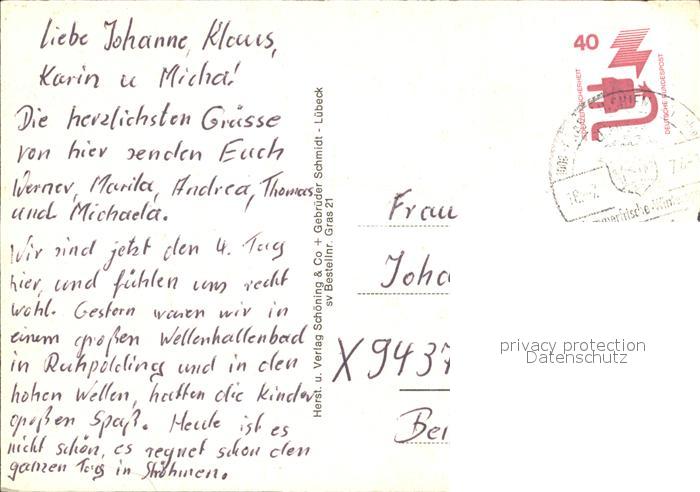 Liebe Johanne, Klaus,
Karin u Micha!
Die herzlichsten Grüsse
von hier senden Euch
Werner, Marita, Andrea, Thomas
und Michaela.
Wir sind jetzt den 4. Tag
hier, und fühlen uns recht
wohl. Gestern waren wir in
einem großen Wellenhallenbad
in Ruhpolding und in den
hohen Wellen, hatten die Kinder
großen Spaß. Heute ist es
nicht schön, es regnet schon den
ganzen Tag in Strömen.
Herst. u. Verlag Schöning & Co + Gebrüder Schmidt - Lübeck
sv Bestellnr. Gras 21
40
JEDERZEIT SICHERHEIT
DEUTSCHE BUNDESPOST
Frau
Joha
X 9437
Bei
privacy protection
Datenschutz